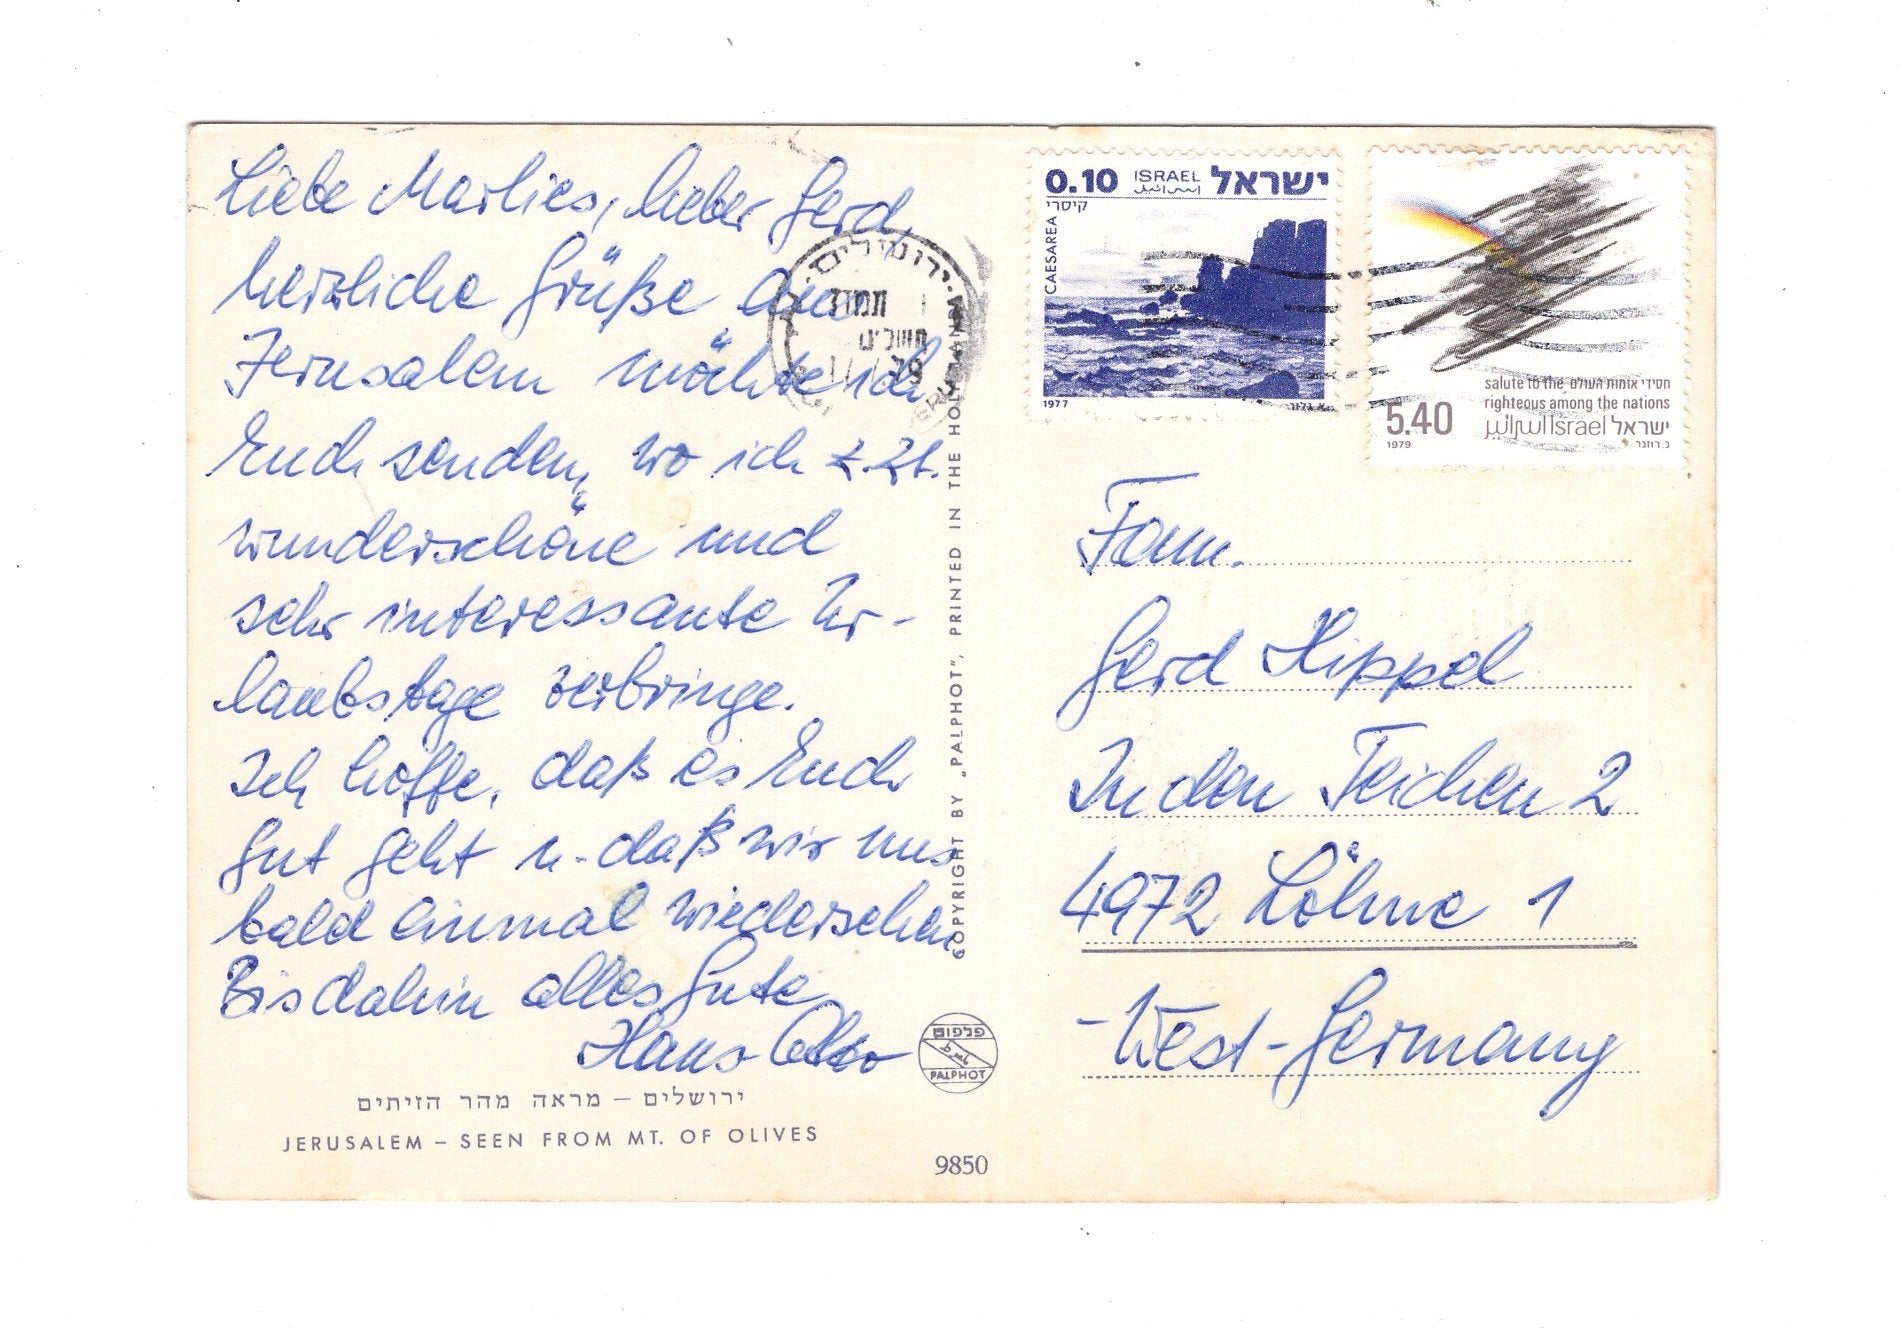 Liebe Marlies, lieber Gerd,
herzliche Grüße aus
Jerusalem möchte ich
Euch senden, wo ich z. Zt.
wunderschöne und
sehr interessante Ur-
laubstage verbringe.
Ich hoffe, daß es Euch
gut geht u. daß wir uns
bald einmal wiedersehen
Bis dahin alles Gute
Hans
ירושלים – מראה מהר הזיתים
JERUSALEM – SEEN FROM MT. OF OLIVES
9850
COPYRIGHT BY „PALPHOT", PRINTED IN THE HOLY LAND
פלפוט
PALPHOT
ירושלים
תמוז
0.10 ISRAEL ישראל
اسرائيل
קיסרי
CAESAREA
1977
salute to the חסידי אומות העולם
righteous among the nations
5.40 اسرائيل Israel ישראל
1979
Fam.
Gerd Hippel
In den Teichen 2
4972 Löhne 1
-West-Germany